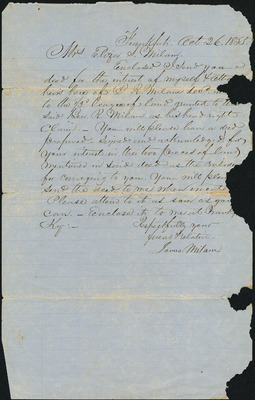 Frankfort Oct 26, 1855
Milam
Enclosed I send you a
deed for the interest of myself & other
heirs of B. R. Milam dec'd
to the league of land granted to the
said Ben. R. Milam as his head right
Claim — You will please have a deed
prepared signed and acknowledged for
your interest in the two pieces of land
mentioned in said deed as the
for conveying to you. You will please
send the deed to me when executed
Please attend to it as soon as you
can — enclose it to me at
Ky —
Respectfully your
friend & relative
James Milam